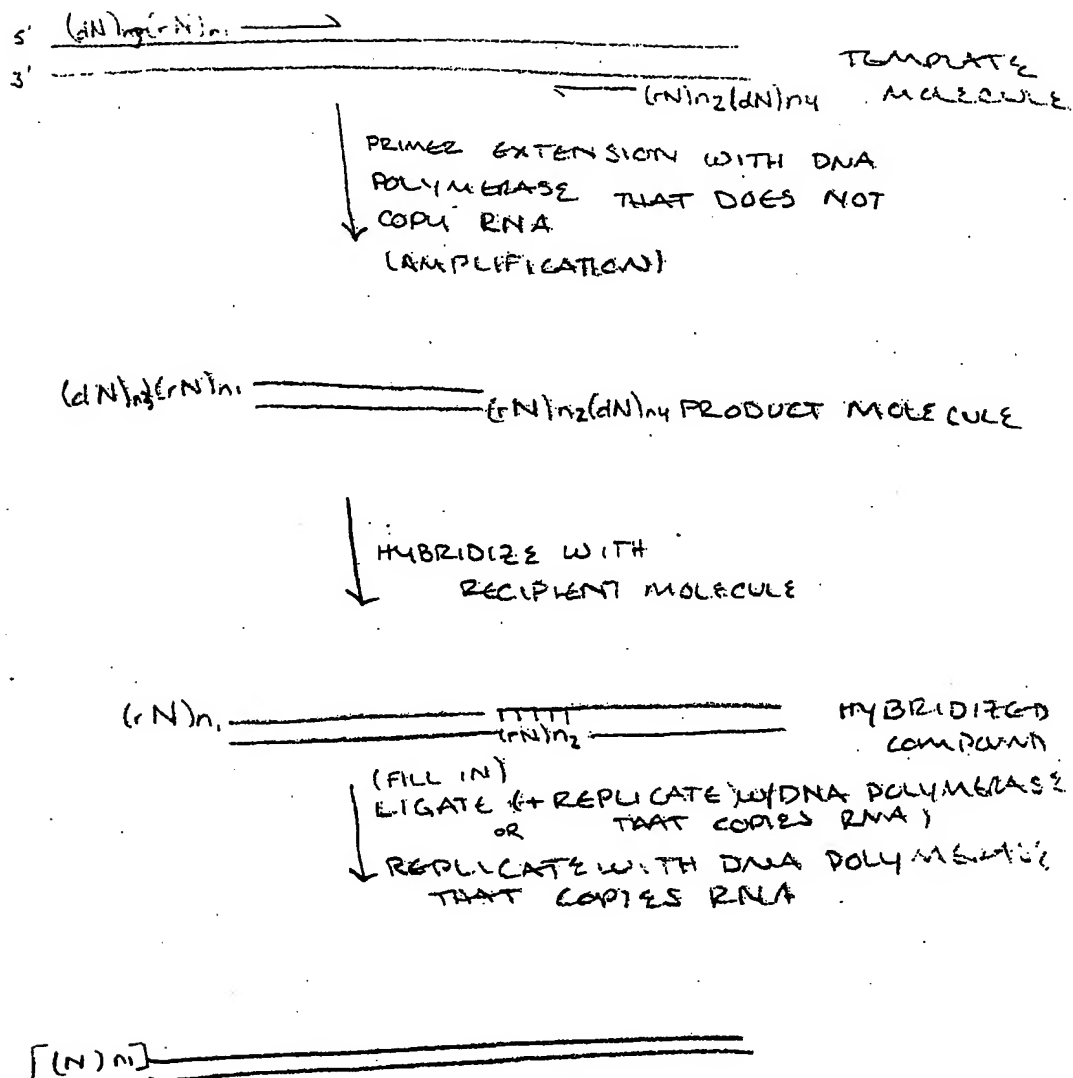 5' (dN)n3(rN)n1
3'
TEMPLATE
MOLECULE
(rN)n2(dN)n4
PRIMER EXTENSION WITH DNA
POLYMERASE THAT DOES NOT
COPY RNA
(AMPLIFICATION)
(dN)n3(rN)n1
(rN)n2(dN)n4 PRODUCT MOLECULE
HYBRIDIZE WITH
RECIPIENT MOLECULE
(rN)n1
(rN)n2
HYBRIDIZED
COMPOUND
(FILL IN)
LIGATE (+ REPLICATE) W/DNA POLYMERASE
OR THAT COPIES RNA)
REPLICATE WITH DNA POLYMERASE
THAT COPIES RNA
[(N)n1]